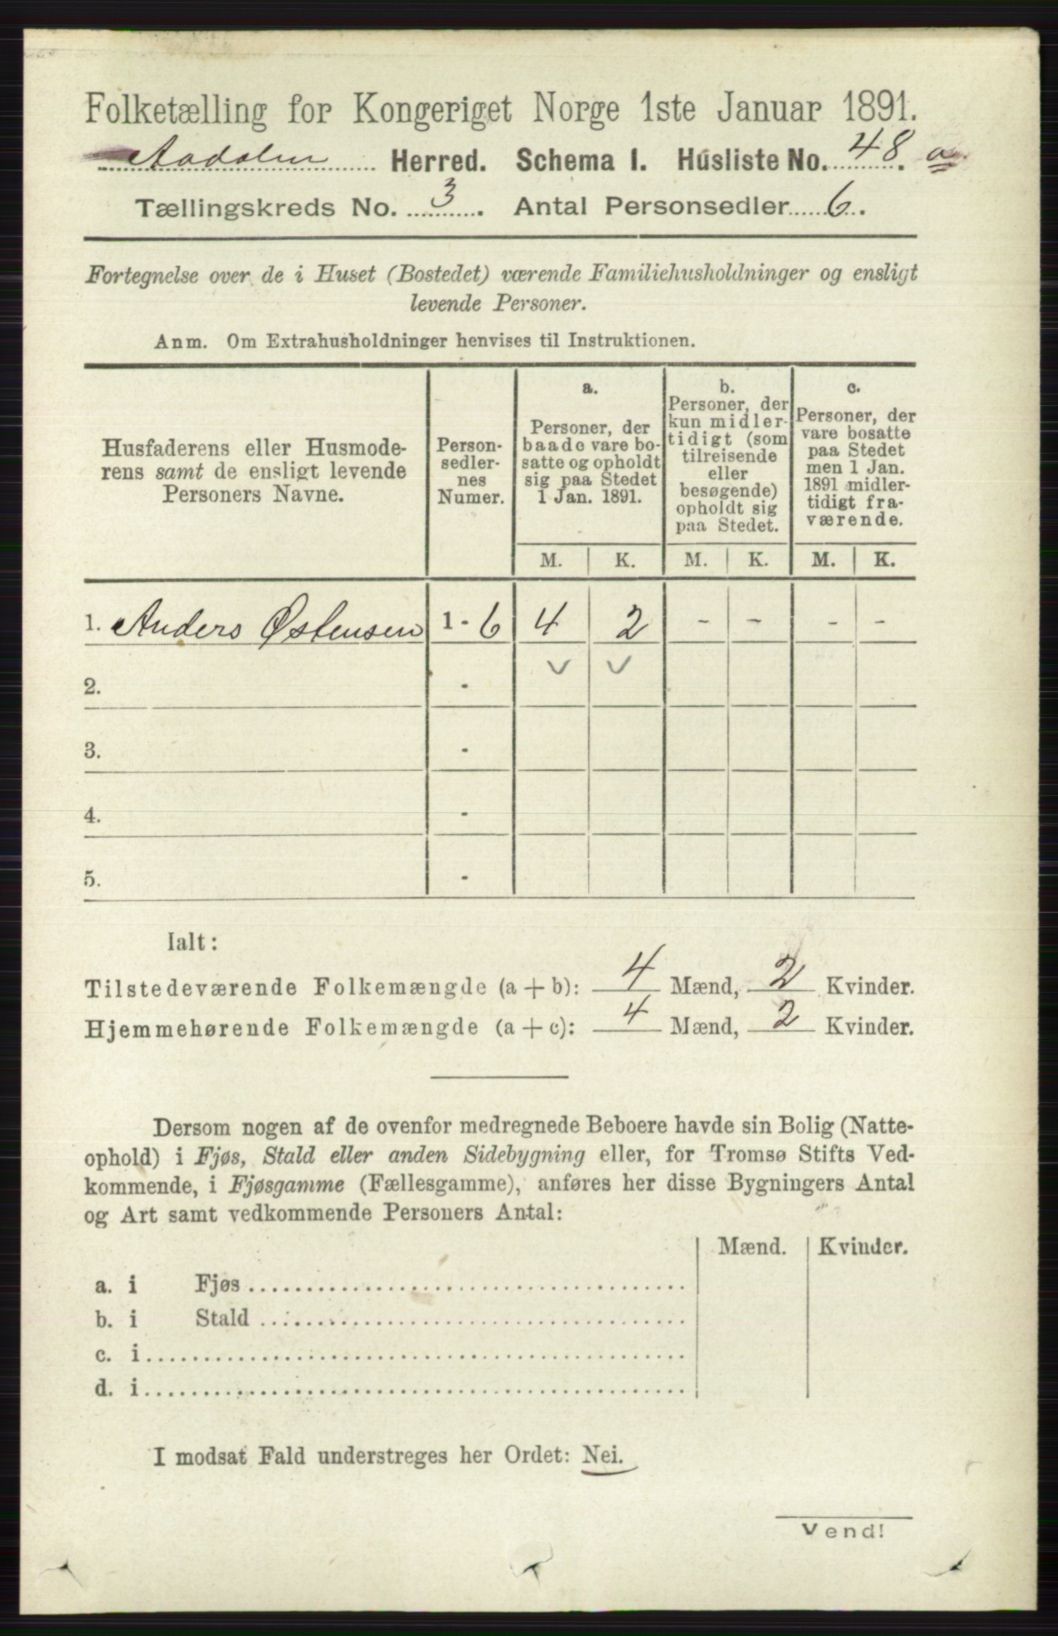 Folketælling for Kongeriget Norge 1ste Januar 1891.
Aadalen Herred. Schema I. Husliste No. 48. a
Tællingskreds No. 3. Antal Personsedler 6.
Fortegnelse over de i Huset (Bostedet) værende Familiehusholdninger og ensligt
levende Personer.
Anm. Om Extrahusholdninger henvises til Instruktionen.
Husfaderens eller Husmode-
rens samt de ensligt levende
Personers Navne.
Person-
sedler-
nes
Numer.
a.
Personer, der
baade vare bo-
satte og opholdt
sig paa Stedet
1 Jan. 1891.
b.
Personer, der
kun midler-
tidigt (som
tilreisende
eller
besøgende)
opholdt sig
paa Stedet.
c.
Personer, der
vare bosatte
paa Stedet
men 1 Jan.
1891 midler-
tidigt fra-
værende.
M. K. M. K. M. K.
1. Anders Østensen 1 - 6 4 2 - - - -
2. -
3. -
4. -
5. -
Ialt:
Tilstedeværende Folkemængde (a + b): 4 Mænd, 2 Kvinder.
Hjemmehørende Folkemængde (a + c): 4 Mænd, 2 Kvinder.
Dersom nogen af de ovenfor medregnede Beboere havde sin Bolig (Natte-
ophold) i Fjøs, Stald eller anden Sidebygning eller, for Tromsø Stifts Ved-
kommende, i Fjøsgamme (Fællesgamme), anføres her disse Bygningers Antal
og Art samt vedkommende Personers Antal:
Mænd. Kvinder.
a. i Fjøs
b. i Stald
c. i
d. i
I modsat Fald understreges her Ordet: Nei.
Vend!